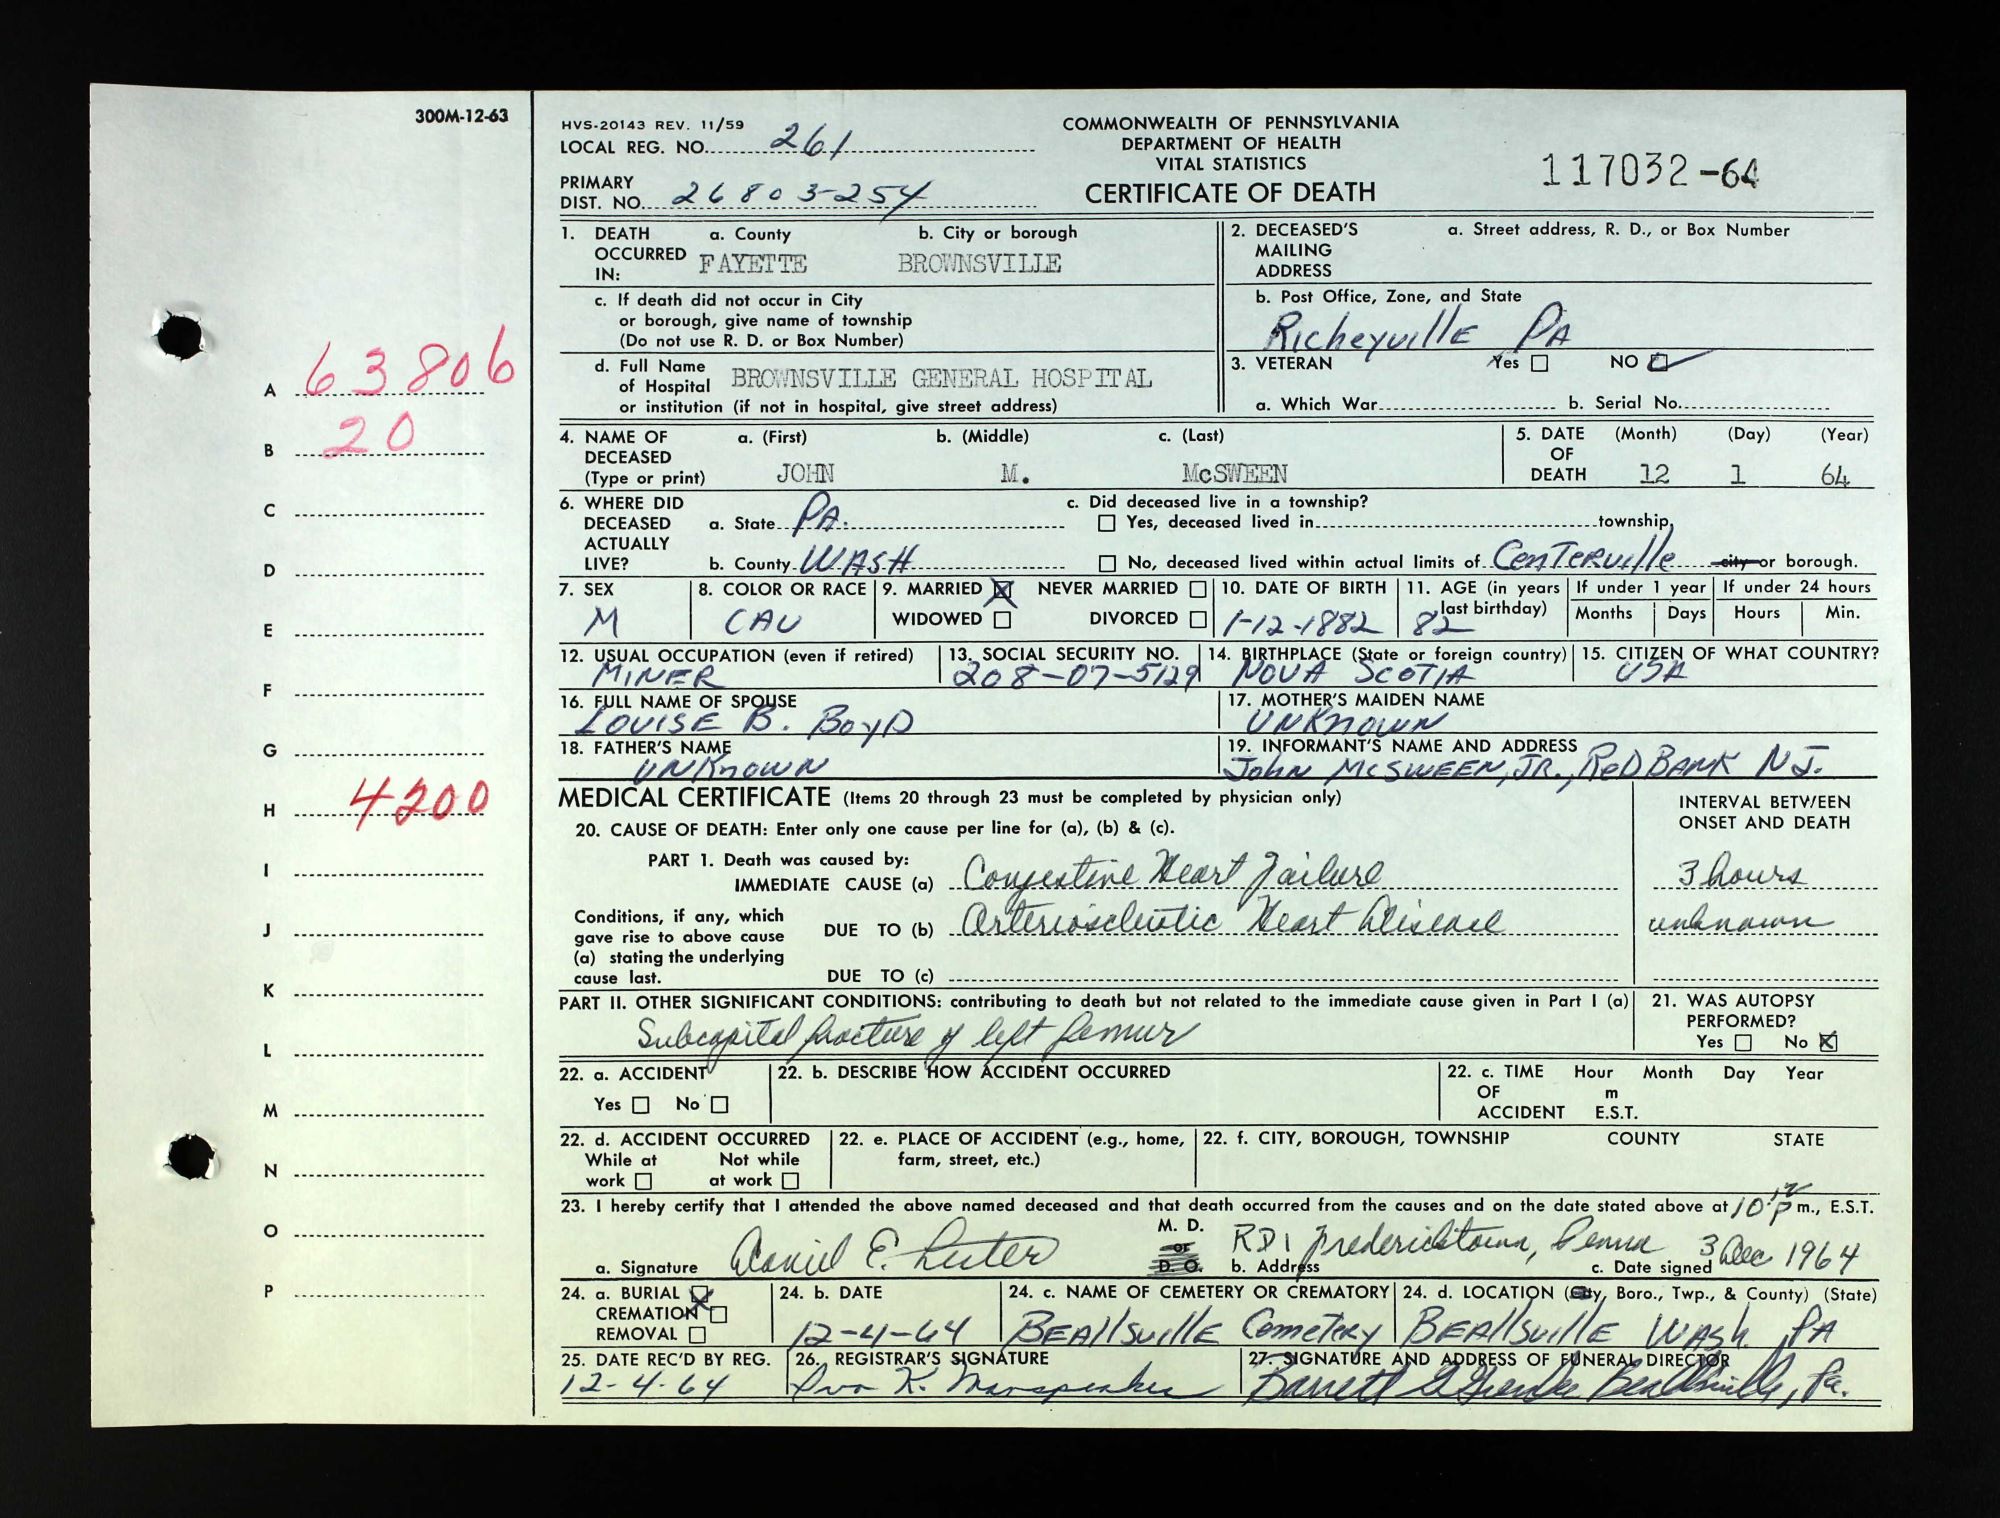 300M-12-63
HVS-20143 REV. 11/59
LOCAL REG. NO. 261
PRIMARY
DIST. NO. 26803-254
COMMONWEALTH OF PENNSYLVANIA
DEPARTMENT OF HEALTH
VITAL STATISTICS
CERTIFICATE OF DEATH
117032-64
A 63806
B 20
C
D
E
F
G
H 4200
I
J
K
L
M
N
O
P
1. DEATH OCCURRED IN: a. County b. City or borough
FAYETTE BROWNSVILLE
c. If death did not occur in City
or borough, give name of township
(Do not use R. D. or Box Number)
d. Full Name
of Hospital BROWNSVILLE GENERAL HOSPITAL
or institution (if not in hospital, give street address)
2. DECEASED'S MAILING ADDRESS a. Street address, R. D., or Box Number
b. Post Office, Zone, and State
Richeyville PA
3. VETERAN Yes NO
a. Which War b. Serial No.
4. NAME OF DECEASED (Type or print) a. (First) b. (Middle) c. (Last)
JOHN M. McSWEEN
5. DATE OF DEATH (Month) (Day) (Year)
12 1 64
6. WHERE DID DECEASED ACTUALLY LIVE?
a. State PA.
b. County WASH
c. Did deceased live in a township?
Yes, deceased lived in township,
No, deceased lived within actual limits of Centerville city or borough.
7. SEX
M
8. COLOR OR RACE
CAU
9. MARRIED NEVER MARRIED
WIDOWED DIVORCED
10. DATE OF BIRTH
1-12-1882
11. AGE (in years last birthday)
82
If under 1 year
Months Days
If under 24 hours
Hours Min.
12. USUAL OCCUPATION (even if retired)
MINER
13. SOCIAL SECURITY NO.
208-07-5129
14. BIRTHPLACE (State or foreign country)
NOVA SCOTIA
15. CITIZEN OF WHAT COUNTRY?
USA
16. FULL NAME OF SPOUSE
LOUISE B. BOYD
17. MOTHER'S MAIDEN NAME
UNKNOWN
18. FATHER'S NAME
UNKNOWN
19. INFORMANT'S NAME AND ADDRESS
John McSWEEN, JR., RED BANK NJ.
MEDICAL CERTIFICATE (Items 20 through 23 must be completed by physician only)
INTERVAL BETWEEN
ONSET AND DEATH
20. CAUSE OF DEATH: Enter only one cause per line for (a), (b) & (c).
PART 1. Death was caused by:
IMMEDIATE CAUSE (a) Congestive Heart Failure 3 hours
Conditions, if any, which
gave rise to above cause
(a) stating the underlying
cause last.
DUE TO (b) Arteriosclerotic Heart Disease unknown
DUE TO (c)
PART II. OTHER SIGNIFICANT CONDITIONS: contributing to death but not related to the immediate cause given in Part I (a)
Subcapital fracture of left femur
21. WAS AUTOPSY
PERFORMED?
Yes No
22. a. ACCIDENT
Yes No
22. b. DESCRIBE HOW ACCIDENT OCCURRED
22. c. TIME Hour Month Day Year
OF m
ACCIDENT E.S.T.
22. d. ACCIDENT OCCURRED
While at Not while
work at work
22. e. PLACE OF ACCIDENT (e.g., home,
farm, street, etc.)
22. f. CITY, BOROUGH, TOWNSHIP COUNTY STATE
23. I hereby certify that I attended the above named deceased and that death occurred from the causes and on the date stated above at 10:12 P m., E.S.T.
a. Signature Daniel E. Lester M. D. or D. O. b. Address RD1 Fredericktown, Penna c. Date signed 3 Dec 1964
24. a. BURIAL
CREMATION
REMOVAL
24. b. DATE
12-4-64
24. c. NAME OF CEMETERY OR CREMATORY
BEAllSville Cemetery
24. d. LOCATION (City, Boro., Twp., & County) (State)
BEAllSvillE WASH. PA
25. DATE REC'D BY REG.
12-4-64
26. REGISTRAR'S SIGNATURE
K.
27. SIGNATURE AND ADDRESS OF FUNERAL DIRECTOR
Beallsville, Pa.